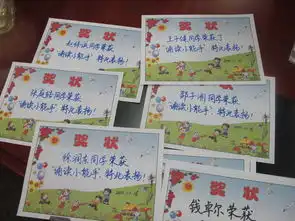 奖状
赵梓涵同学荣获
“诵读小能手”特此表扬!
奖状
王子涵同学荣获了
“诵读小能手”特此表扬!
奖状
同学荣获
“诵读小能手”特此表扬!
奖状
邹子涵同学荣获
“诵读小能手”特此表扬!
奖状
徐润东同学荣获
“诵读小能手”特此表扬!
奖状
钱卓尔荣获